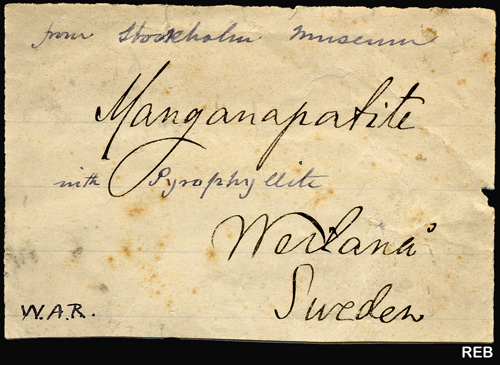 from Stockholm Museum
Manganapatite
with Pyrophyllite
Sweden
W.A.R.
REB